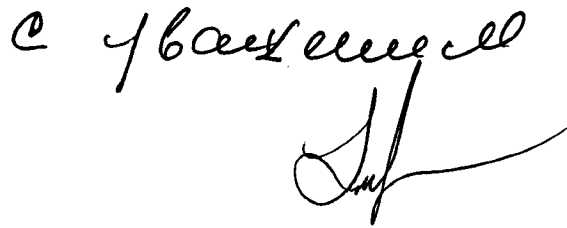 С уважением